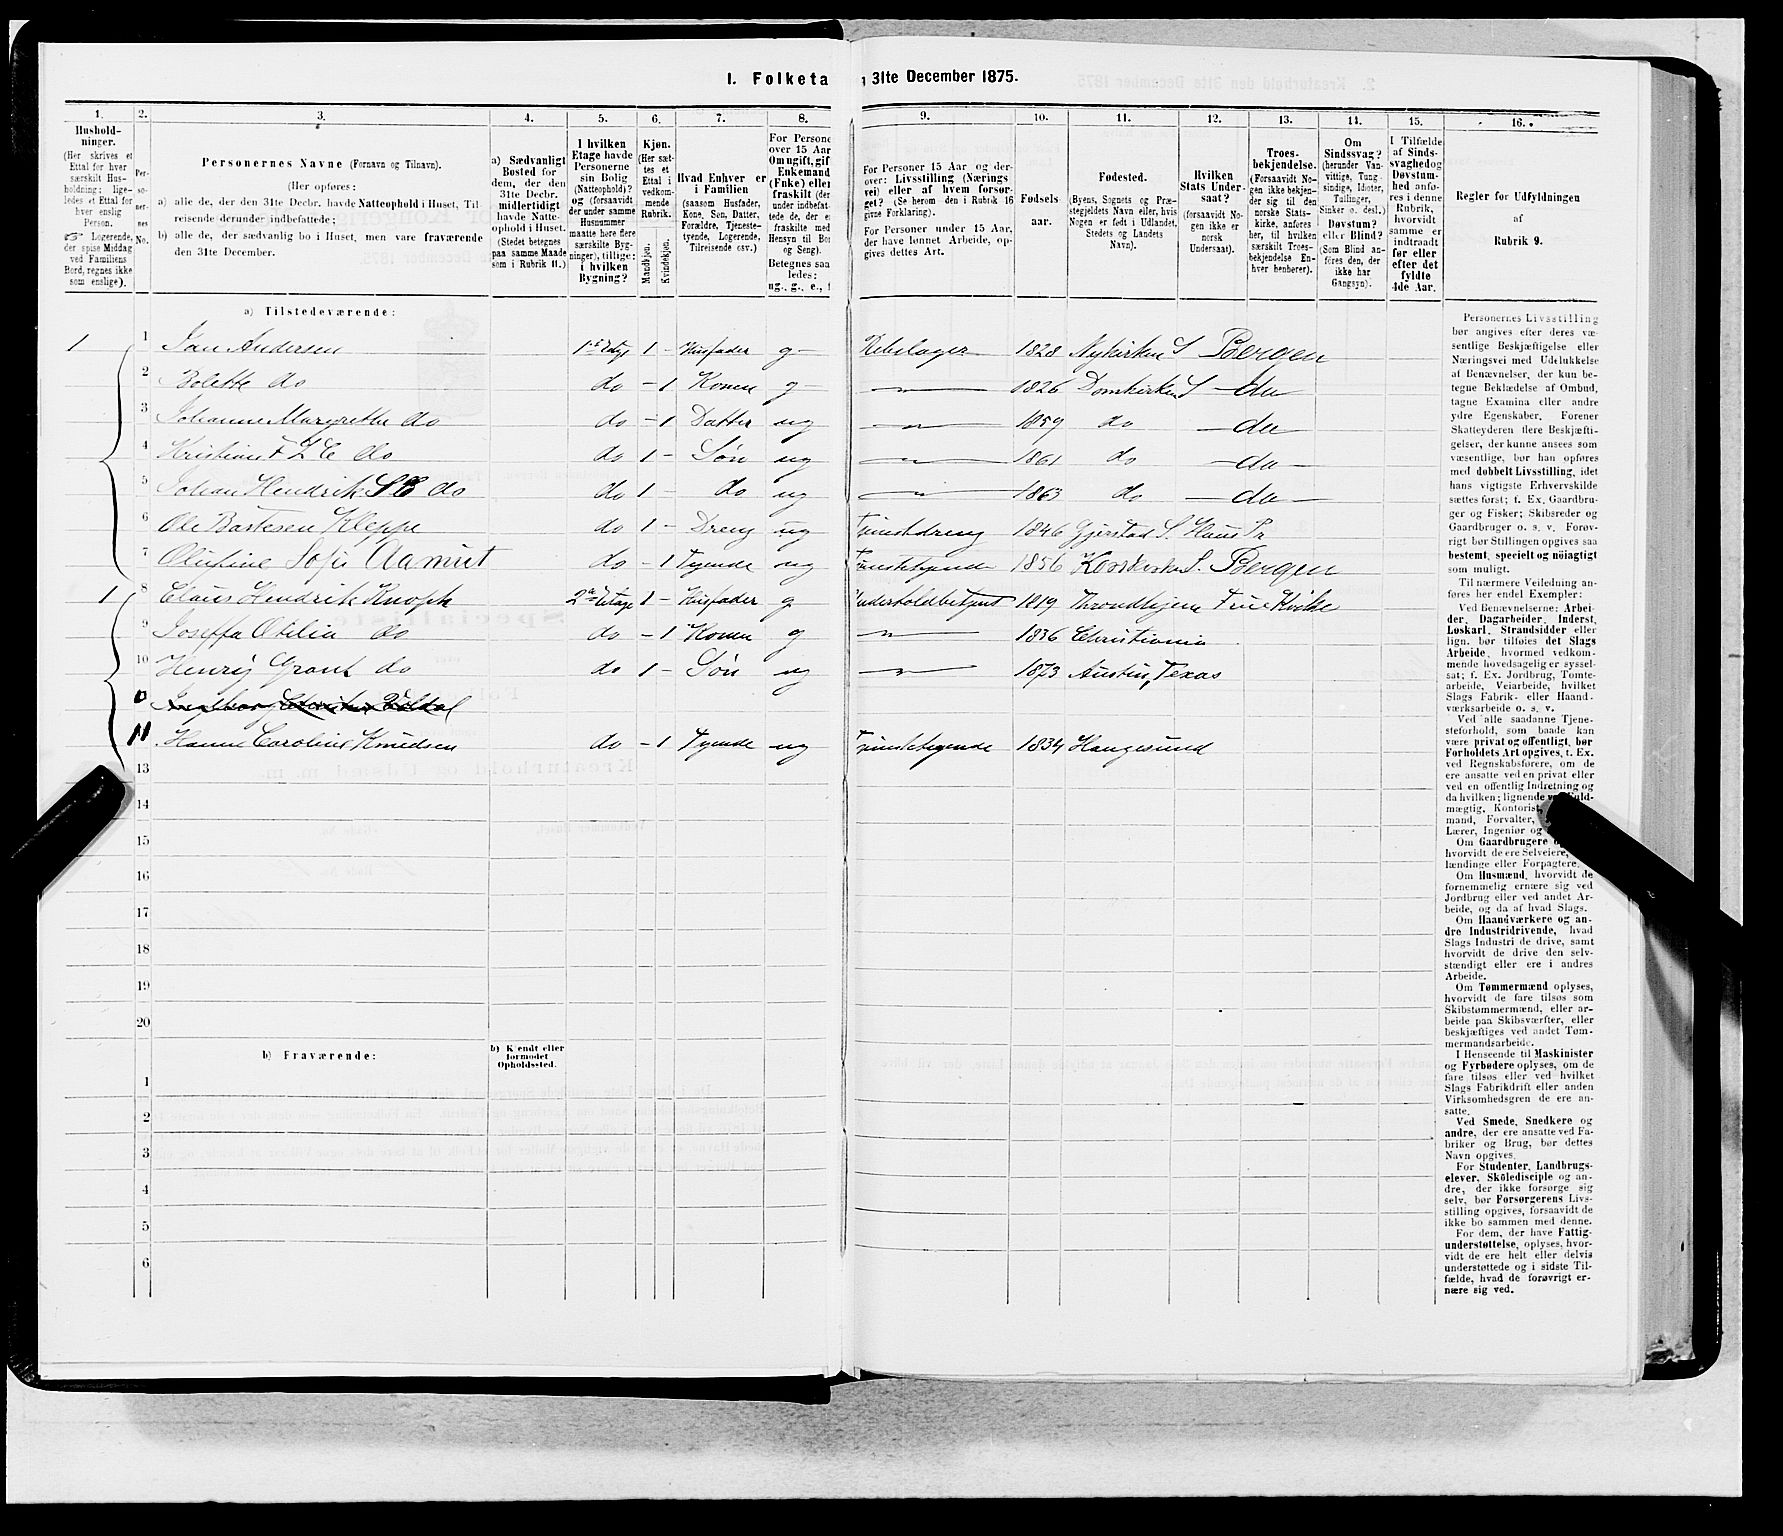 I. Folketa
31te December 1875.
1.
2.
3.
4.
5.
6.
7.
8.
9.
10.
11.
12.
13.
14.
15.
16.
Hushold-
ninger.
(Her skrives et
Ettal for hver
særskilt Hus-
holdning; lige-
ledes et Ettal for
hver enslig
Person.
☞ Logerende,
der spise Middag
ved Familiens
Bord, regnes ikke
som enslige).
Per-
so-
ner-
nes
No.
Personernes Navne (Fornavn og Tilnavn).
(Her opføres:
a) alle de, der den 31te Decbr. havde Natteophold i Huset, Til-
reisende derunder indbefattede;
b) alle de, der sædvanlig bo i Huset, men vare fraværende
den 31te December.
a) Sædvanligt
Bosted for
dem, der den
31te Decbr.
midlertidigt
havde Natte-
ophold i Huset.
(Stedet betegnes
paa samme Maade
som i Rubrik 11.)
I hvilken
Etage havde
Personerne
sin Bolig
(Natteophold)?
og (forsaavidt
der under samme
Husnummer
maatte høre flere
særskilte Byg-
ninger), tillige:
i hvilken
Bygning?
Kjøn.
(Her sæt-
tes et
Ettal i
vedkom-
mende
Rubrik.
Mandkjøn.
Kvindekjøn.
Hvad Enhver er
i Familien
(saasom Husfader,
Kone, Søn, Datter,
Forældre, Tjeneste-
tyende, Logerende,
Tilreisende osv.)
For Persone
over 15 Aar
Om ugift, gif
Enkemand
(Enke) eller
fraskilt (der
under indbefat
tede de, der e
fraskilte med
Hensyn til Bor
og Seng).
Betegnes saa
ledes:
ug., g., e., f
For Personer 15 Aar og der-
over: Livsstilling (Nærings-
vei) eller af hvem forsør-
get? (Se herom den i Rubrik 16
givne Forklaring).
For Personer under 15 Aar,
der have lønnet Arbeide, op-
gives dettes Art.
Fødsels-
aar.
Fødested.
(Byens, Sognets og Præ-
stegjeldets Navn eller, hvis
Nogen er født i Udlandet,
Stedets og Landets
Navn).
Hvilken
Stats Under-
saat?
(forsaavidt No-
gen ikke er
norsk
Undersaat).
Troes-
bekjendelse.
(Forsaavidt No-
gen ikke bekjen-
der sig til den
norske Stats-
kirke, anføres
her, til hvilken
særskilt Troes-
bekjendelse En-
hver henhører).
Om
Sindssvag?
(herunder Van-
vittige, Tung-
sindige, Idioter,
Tullinger,
Sinker o. desl.)
Døvstum?
eller Blind?
(Som Blind an-
føres den, der
ikke har
Gangsyn).
I Tilfælde
af Sinds-
svaghedog
Døvstum-
hed anfø-
res i denne
Rubrik,
hvorvidt
samme er
indtraadt
før eller
efter det
fyldte
4de Aar.
Regler for Udfyldningen
af
Rubrik 9.
a) Tilstedeværende:
1 1 Jan Andersen 1ste Etage 1 – Husfader g Rebslager 1828 Nykirken S Bergen
2 Bolette do do – 1 Kone g —"— 1826 Domkirken S – do
3 Johanne Margrethe do do – 1 Datter ug —"— 1859 do – do
4 Kristian F L C do do 1 – Søn ug —"— 1861 do – do –
5 Johan Hendrik S B do do 1 – do ug —"— 1863 do – do –
6 Ole Bartesen Kleppe do 1 – Dreng ug Tjenstdreng 1846 Gjerstad S. Haus Pr
7 Olufine Sofie Aamodt do – 1 Tyende ug Tjenstetyende 1856 Korskirken S. Bergen
1 8 Claus Hendrik Knoph 2den Etage 1 – Husfader g Underholdbetjent 1819 Throndhjem Frue Kirke
9 Joseffa Otilia do do – 1 Kone g —"— 1836 Christiania
10 Henrij Grant do do 1 – Søn ug —"— 1873 Austin, Texas
11 Hanne Caroline Knudsen do – 1 Tyende ug Tjenstetyende 1834 Haugesund
13
14
15
16
17
18
19
20
b) Fraværende:
b) Kjendt eller
formodet
Opholdssted.
1
2
3
4
5
6
Personernes Livsstilling
bør angives efter deres væ-
sentlige Beskjæftigelse eller
Næringsvei med Udelukkelse
af Benævnelser, der kun be-
tegne Beklædelse af Ombud,
tagne Examina eller andre
ydre Egenskaber. Forener
Skatteyderen flere Beskjæfti-
gelser, der kunne ansees som
væsentlige, bør han opføres
med dobbelt Livsstilling, idet
hans vigtigste Erhvervskilde
sættes først; f. Ex. Gaardbru-
ger og Fisker; Skibsreder og
Gaardbruger o. s. v. Forøv-
rigt bør Stillingen opgives saa
bestemt, specielt og nöiagtigt
som muligt.
Til nærmere Veiledning an-
føres her endel Exempler:
Ved Benævnelserne: Arbei-
der, Dagarbeider, Inderst,
Løskarl, Strandsidder eller
lign. bør tilføies det Slags
Arbeide, hvormed vedkom-
mende hovedsagelig er syssel-
sat; f. Ex. Jordbrug, Tomte-
arbeide, Veiarbeide, hvilket
Slags Fabrik- eller Haand-
værksarbeide o. s. v.
Ved alle saadanne Tjene-
steforhold, som baade kan
være privat og offentligt, bør
Forholdets Art opgives, t. Ex.
ved Regnskabsførere, om de
ere ansatte ved en privat eller
ved en offentlig Indretning og
da hvilken; lignende ved Fuld-
mægtig, Kontorist,
mand, Forvalter,
Lærer, Ingeniør og
Om Gaardbrugere
hvorvidt de ere Selveiere,
lændinge eller Forpagtere.
Om Husmænd, hvorvidt de
fornemmelig ernære sig ved
Jordbrug eller ved andet Ar-
beide, og da af hvad Slags.
Om Haandværkere og an-
dre Industridrivende, hvad
Slags Industri de drive, samt
hvorvidt de drive den selv-
stændigt eller ere i andres
Arbeide.
Om Tømmermænd oplyses,
hvorvidt de fare tilsøs som
Skibstømmermænd, eller ar-
beide paa Skibsværfter, eller
beskjæftiges ved andet Tøm-
mermandsarbeide.
I Henseende til Maskinister
og Fyrbødere oplyses, om de
fare tilsøs eller ved hvilket
Slags Fabrikdrift eller anden
Virksomhedsgren de ere an-
satte.
Ved Smede, Snedkere og
andre, der ere ansatte ved Fa-
briker og Brug, bør dettes
Navn opgives.
For Studenter, Landbrugs-
elever, Skoledisciple og an-
dre, der ikke forsørge sig
selv, bør Forsørgerens Livs-
stilling opgives, forsaavidt de
ikke bo sammen med denne.
For dem, der have Fattig-
understøttelse, oplyses, hvor-
vidt de ere helt eller delvis
understøttede og i sidste Til-
fælde, hvad de forøvrigt er-
nære sig ved.